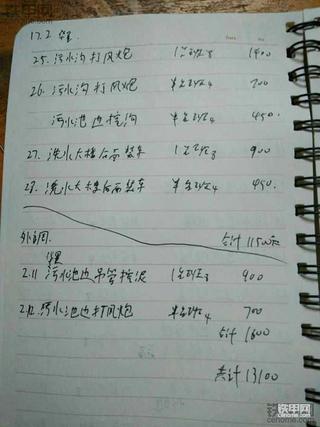 铁甲网
17.2
25. 污水沟打风炮 1台班8 1400
26. 污水沟打风炮 半台班4 700
污水池边挖沟 半台班4 450
27. 洗水大楼后面装车 1台班8 900
28. 洗水大楼后面装车 半台班4 450
合计 11500元
外调
2.11 污水池边吊管挖泥 1台班8 900
2.12. 污水池边打风炮 半台班4 700
合计 1600
共计 13100
铁甲网
cehome.com